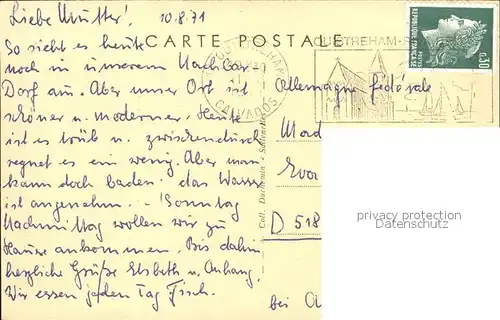 Liebe Mutter! 10.8.71
CARTE POSTALE
So sieht es heute
noch in unserem Nachbar-
Dorf aus. Aber unser Ort ist
schöner u. moderner. Heute
ist es trüb u. zwischendurch
regnet es ein wenig. Aber man
kann doch baden. das Wasser
ist angenehm. - Sonntag
Nachmittag wollen wir zu
Hause ankommen. Bis dahin
herzliche Grüße Elsbeth u. Anhang.
Wir essen jeden Tag Fisch.
OUISTREHAM
CALVADOS
OUISTREHAM-
REPUBLIQUE FRANCAISE
POSTES
0,30
Allemagne fédérale
D 518
bei
privacy protection
Datenschutz